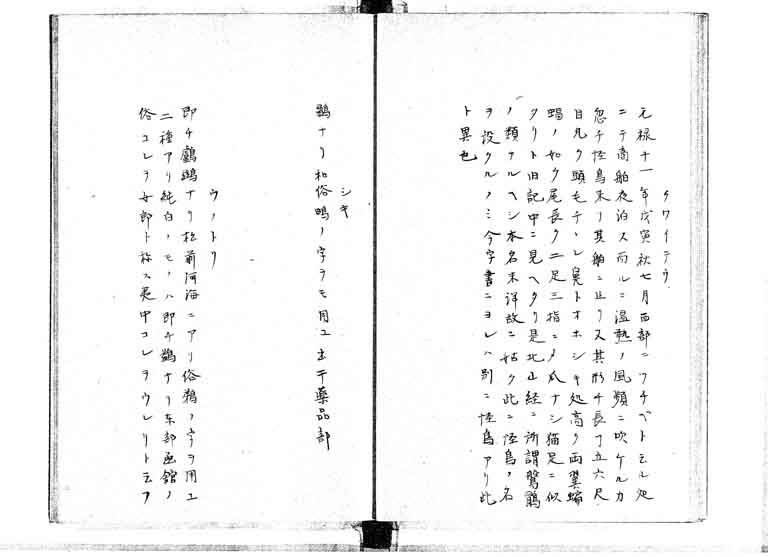 クワイテウ
元禄十一年戊寅秋七月西部ニフチベト云ル処
ニテ商舶夜泊ス而ルニ温熱ノ風頻ニ吹ケルカ
忽チ怪鳥来リ其舶ニ止リス其形チ長丁五六尺
目凡ク頭毛チヽレ鼻トオホシキ処高ク両翼蝙
蝠ノ如ク尾長ク二足三指ニメ爪ナシ猫足ニ似
タリト旧記中ニ見ヘタリ是北山経ニ所謂鶖鶹
ノ類ナルヘシ本名未詳故ニ姑ク此ニ怪鳥ノ名
ヲ設クルノミ今字書ニヨレハ別ニ怪鳥アリ此
ト異也
シギ
鷸ナリ和俗鴫ノ字ヲモ用ユ出干薬品部
ウノトリ
即チ鸕鷀ナリ松前河海ニアリ俗鵜ノ字ヲ用ユ
二種アリ純白ノモノハ即チ鷀ナリ東部函館ノ
俗コレヲ女郎ト称ス夷中コレヲウレリト云フ